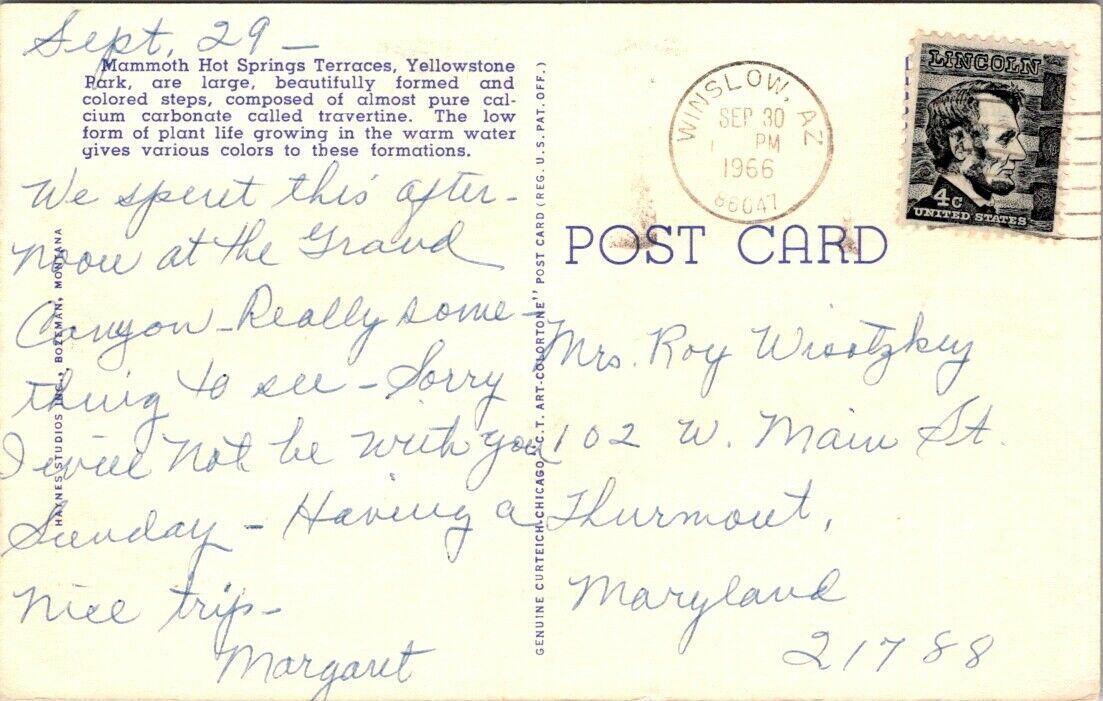 Sept. 29 —
Mammoth Hot Springs Terraces, Yellowstone
Park, are large, beautifully formed and
colored steps, composed of almost pure cal-
cium carbonate called travertine. The low
form of plant life growing in the warm water
gives various colors to these formations.
We spent this after-
noon at the Grand
Canyon - Really some-
thing to see - Sorry
I will not be with you
Sunday - Having a
nice trip -
Margaret
HAYNES STUDIOS INC., BOZEMAN, MONTANA
GENUINE CURTEICH-CHICAGO "C.T. ART-COLORTONE" POST CARD (REG. U.S. PAT. OFF.)
WINSLOW, AZ
SEP 30
PM
1966
86047
LINCOLN
4c
UNITED STATES
POST CARD
Mrs. Roy Wisotzkey
102 W. Main St.
Thurmont,
Maryland
21788